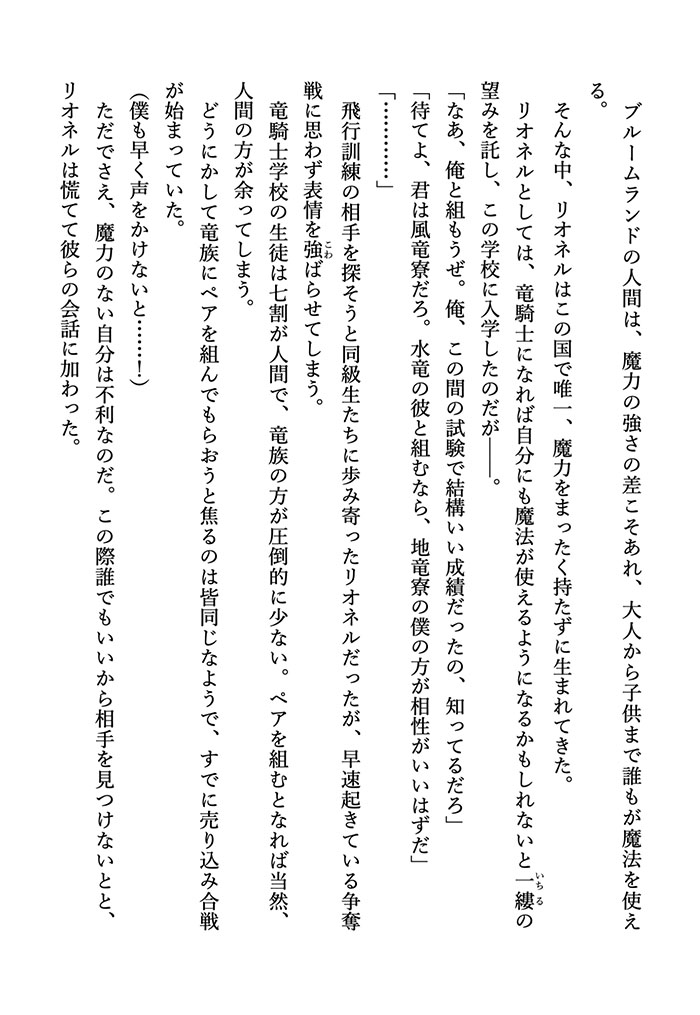 ブルームランドの人間は、魔力の強さの差こそあれ、大人から子供まで誰もが魔法を使え
る。
　そんな中、リオネルはこの国で唯一、魔力をまったく持たずに生まれてきた。
　リオネルとしては、竜騎士になれば自分にも魔法が使えるようになるかもしれないと一縷の
望みを託し、この学校に入学したのだが――。
「なあ、俺と組もうぜ。俺、この間の試験で結構いい成績だったの、知ってるだろ」
「待てよ、君は風竜寮だろ。水竜の彼と組むなら、地竜寮の僕の方が相性がいいはずだ」
「…………」
　飛行訓練の相手を探そうと同級生たちに歩み寄ったリオネルだったが、早速起きている争奪
戦に思わず表情を強ばらせてしまう。
　竜騎士学校の生徒は七割が人間で、竜族の方が圧倒的に少ない。ペアを組むとなれば当然、
人間の方が余ってしまう。
　どうにかして竜族にペアを組んでもらおうと焦るのは皆同じなようで、すでに売り込み合戦
が始まっていた。
（僕も早く声をかけないと……！）
　ただでさえ、魔力のない自分は不利なのだ。この際誰でもいいから相手を見つけないとと、
リオネルは慌てて彼らの会話に加わった。